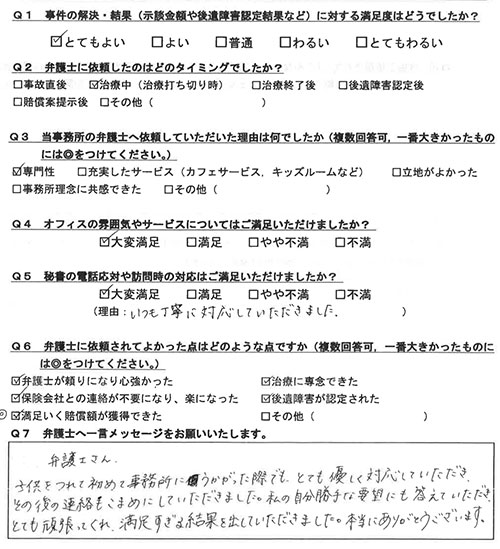 Q1 事件の解決・結果(示談金額や後遺障害認定結果など)に対する満足度はどうでしたか?
☑とてもよい □よい □普通 □わるい □とてもわるい
Q2 弁護士に依頼したのはどのタイミングでしたか?
□事故直後 ☑治療中(治療打ち切り時) □治療終了後 □後遺障害認定後
□賠償案提示後 □その他( )
Q3 当事務所の弁護士へ依頼していただいた理由は何でしたか(複数回答可,一番大きかったもの
には◎をつけてください。)
☑専門性 □充実したサービス(カフェサービス,キッズルームなど) □立地がよかった
□事務所理念に共感できた □その他( )
Q4 オフィスの雰囲気やサービスについてはご満足いただけましたか?
☑大変満足 □満足 □やや不満 □不満
Q5 秘書の電話応対や訪問時の対応はご満足いただけましたか?
☑大変満足 □満足 □やや不満 □不満
(理由:いつも丁寧に対応していただきました。 )
Q6 弁護士に依頼されてよかった点はどのような点ですか(複数回答可,一番大きかったものに
は◎をつけてください。)
☑弁護士が頼りになり心強かった ☑治療に専念できた
☑保険会社との連絡が不要になり、楽になった ☑後遺障害が認定された
◎☑満足いく賠償額が獲得できた □その他( )
Q7 弁護士へ一言メッセージをお願いいたします。
弁護士さん
子供をつれて初めて事務所にうかがった際でも、とても優しく対応していただき、
その後の連絡もこまめにしていただきました。私の自分勝手な要望にも答えていただき
とても頑張ってくれ、満足すぎる結果を出していただきました。本当にありがとうございます。